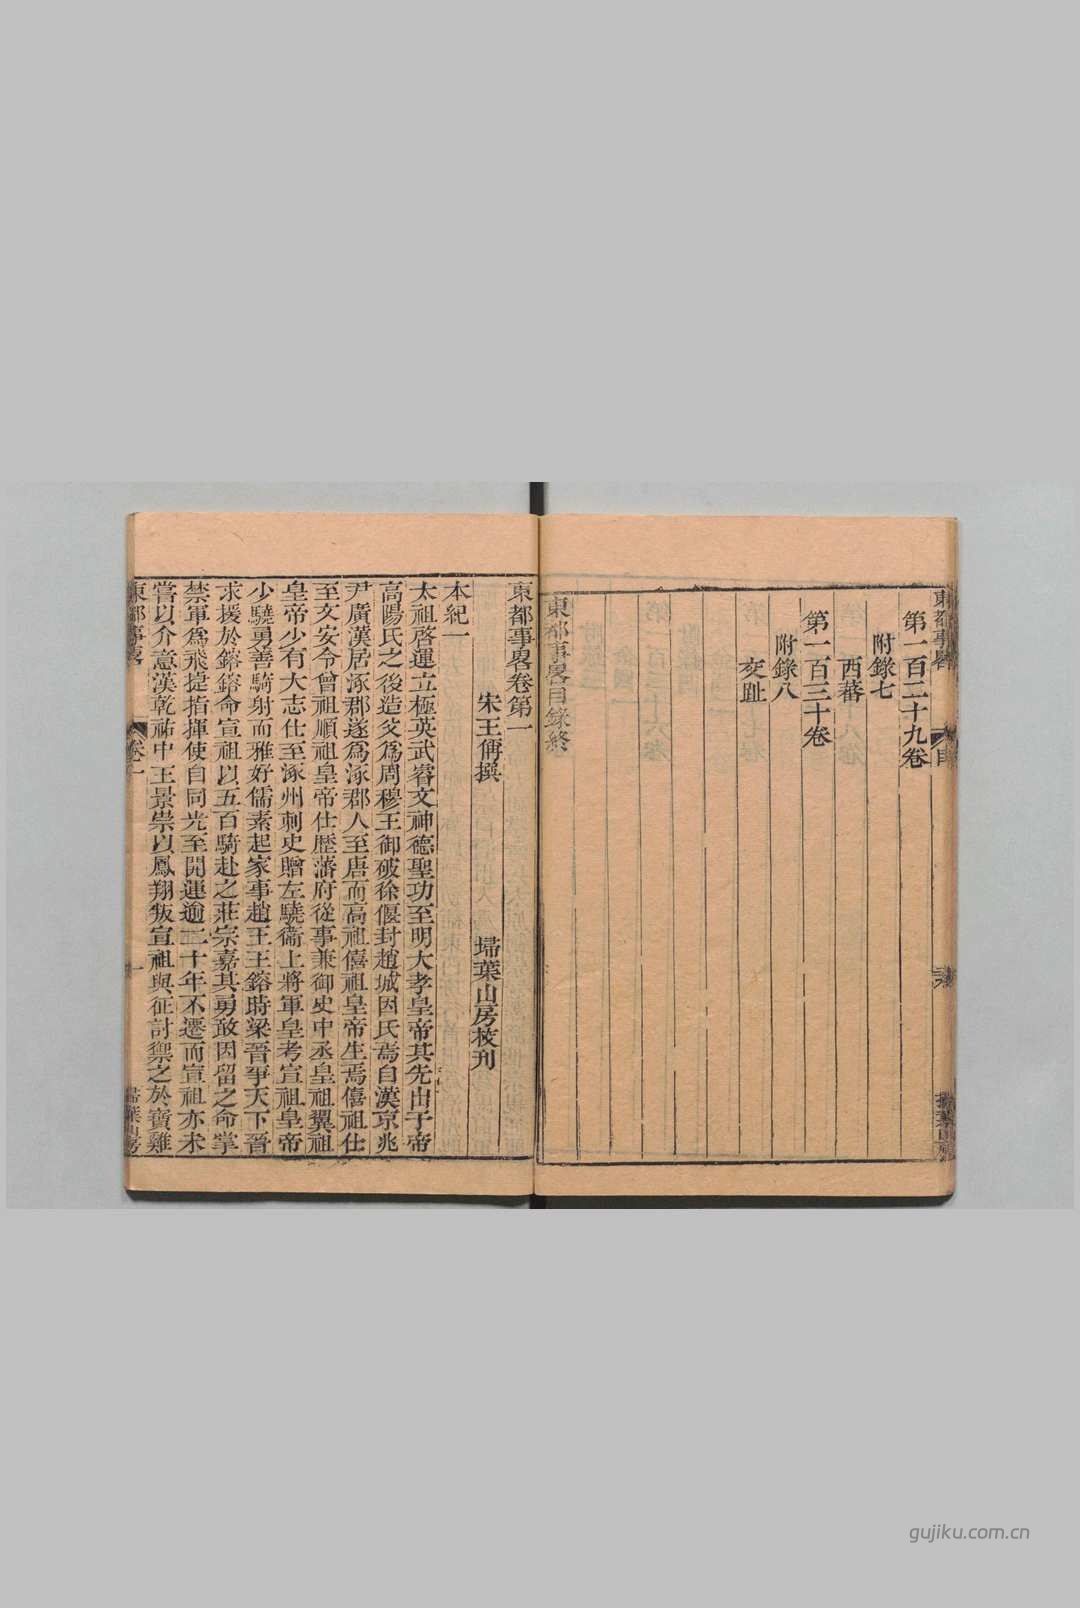 東都事畧
目
掃葉山房
第一百二十九卷
附錄七
西蕃
第一百三十卷
附錄八
交趾
東都事畧目錄終
東都事畧卷第一
宋王偁撰
掃葉山房校刊
本紀一
太祖啓運立極英武睿文神德聖功至明大孝皇帝其先出于帝
高陽氏之後造父爲周穆王御破徐偃封趙城因氏焉自漢京兆
尹廣漢居涿郡遂爲涿郡人至唐而高祖僖祖皇帝生焉僖祖仕
至文安令曾祖順祖皇帝仕歷藩府從事兼御史中丞皇祖翼祖
皇帝少有大志仕至涿州刺史贈左驍衞上將軍皇考宣祖皇帝
少驍勇善騎射而雅好儒素起家事趙王王鎔時梁晉爭天下晉
求援於鎔鎔命宣祖以五百騎赴之莊宗嘉其勇敢因留之命掌
禁軍爲飛捷指揮使自同光至開運逾二十年不遷而宣祖亦未
嘗以介意漢乾祐中王景崇以鳳翔叛宣祖與征討禦之於寶雞
東都事畧
卷一
一
掃葉山房
gujiku.com.cn